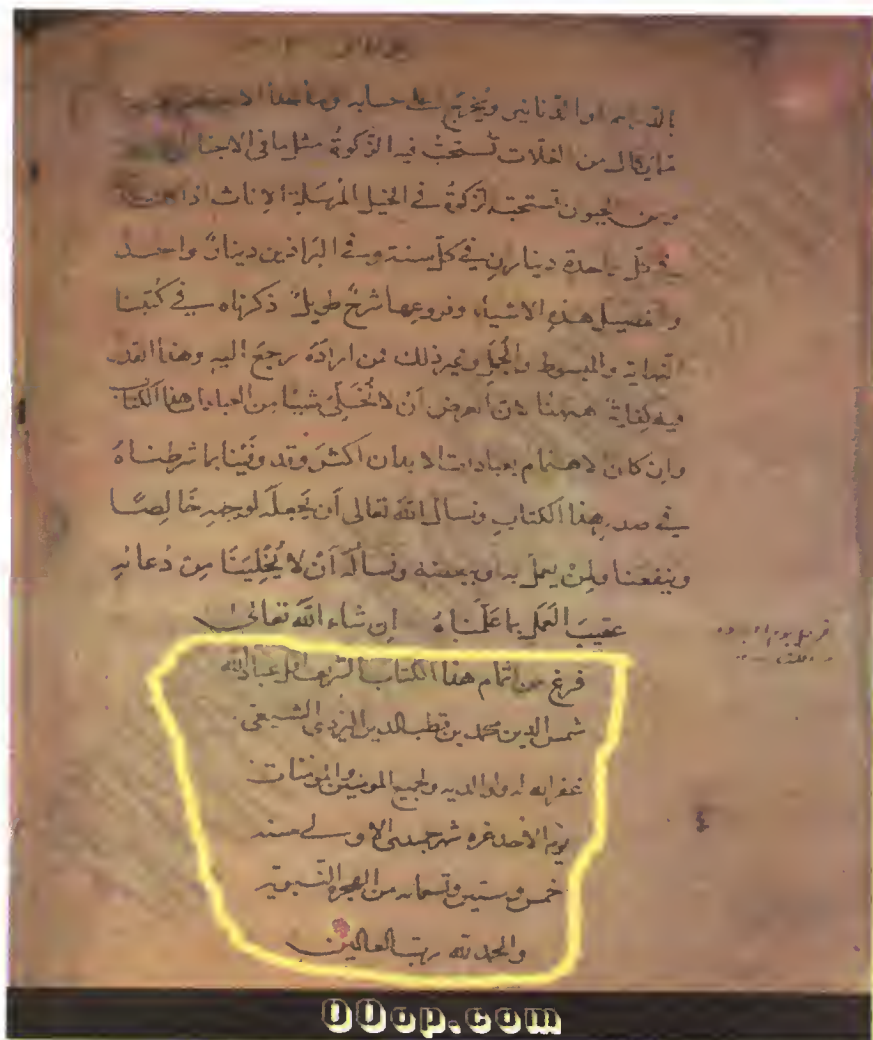 الدراهم او الدنانير ويُخرج على حسابه وما عدا
من الغلات تستحبّ فيه الزكوةُ مثل ما فى الاجناس
ومن الحيون تستحبّ الزكوةُ في الخيل المُرسَلة الإناث اذا
في كل واحدة ديناران في كل سنة وفي البَراذين دينارٌ واحد
وتفصيل هذه الاشياء وفروعِها شرحٌ طويلٌ ذكرناه في كُتبنا
النهاية والمبسوط والجُمَل وغير ذلك من ارادَهُ رجعَ اليه وهذا القدر
فيه كفايةٌ ههنا لان الغرض اَنْ لا نُخلّىَ شيئا من العبادات هذا الكتاب
وان كان الاهتمام بعبادات الابدان اكثرَ وقد وفَيْنا بما شرطناهُ
في صدر هذا الكتابِ ونسال اللهَ تعالى اَن يَجعلَه لوجهِهِ خَالِصًا
وينفعنا ولِمَنْ يعمل به او ببعضه ونسألُه اَنْ لا يُخْلِيَنَا مِن دُعائهِ
عقيبَ العَمَلِ بما عَلَّمناهُ اِن شاء اللهُ تعالىٰ
فرغ من اتمام هذا الكتاب الشريف اقل عباد الله
شمس الدين محمد بن قطب الدين اليزدى الشيعى
غفر الله له ولوالديه ولجميع المومنين والمومنات
يوم الاحد غره شهر جمدى الاولى سنه
خمس وستين وتسعمايه من الهجرة النبوية
والحمد لله رب العالمين
٤
00op.com